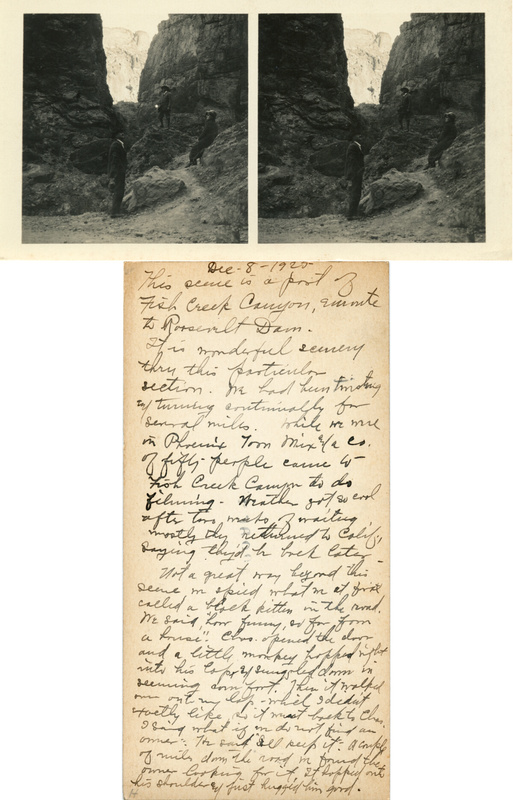 Dec-8-1925
This scene is a part of
Fish Creek Canyon, enroute
to Roosevelt Dam.
It is wonderful scenery
thru this particular
section. We had been twisting
& turning continually for
several miles. While we were
in Phoenix Tom Mix & a co.
of fifty people came to
Fish Creek Canyon to do
filming - Weather got so cool
after two weeks of waiting
mostly they returned to Calif.
saying they'd be back later -
Not a great way beyond this
scene we spied what we at first
called a black kitten in the road.
We said, "how funny, so far from
a house". Chas. opened the door
and a little monkey hopped right
into his lap & snuggled down in
seeming comfort. Then it walked
over out my lap - which I didn't
exactly like, so it went back to Chas.
I said what if we do not find an
owner - He said I'll keep it - A couple
of miles down the road we found the
owner looking for it. It hopped onto
his shoulder & just hugged him good.